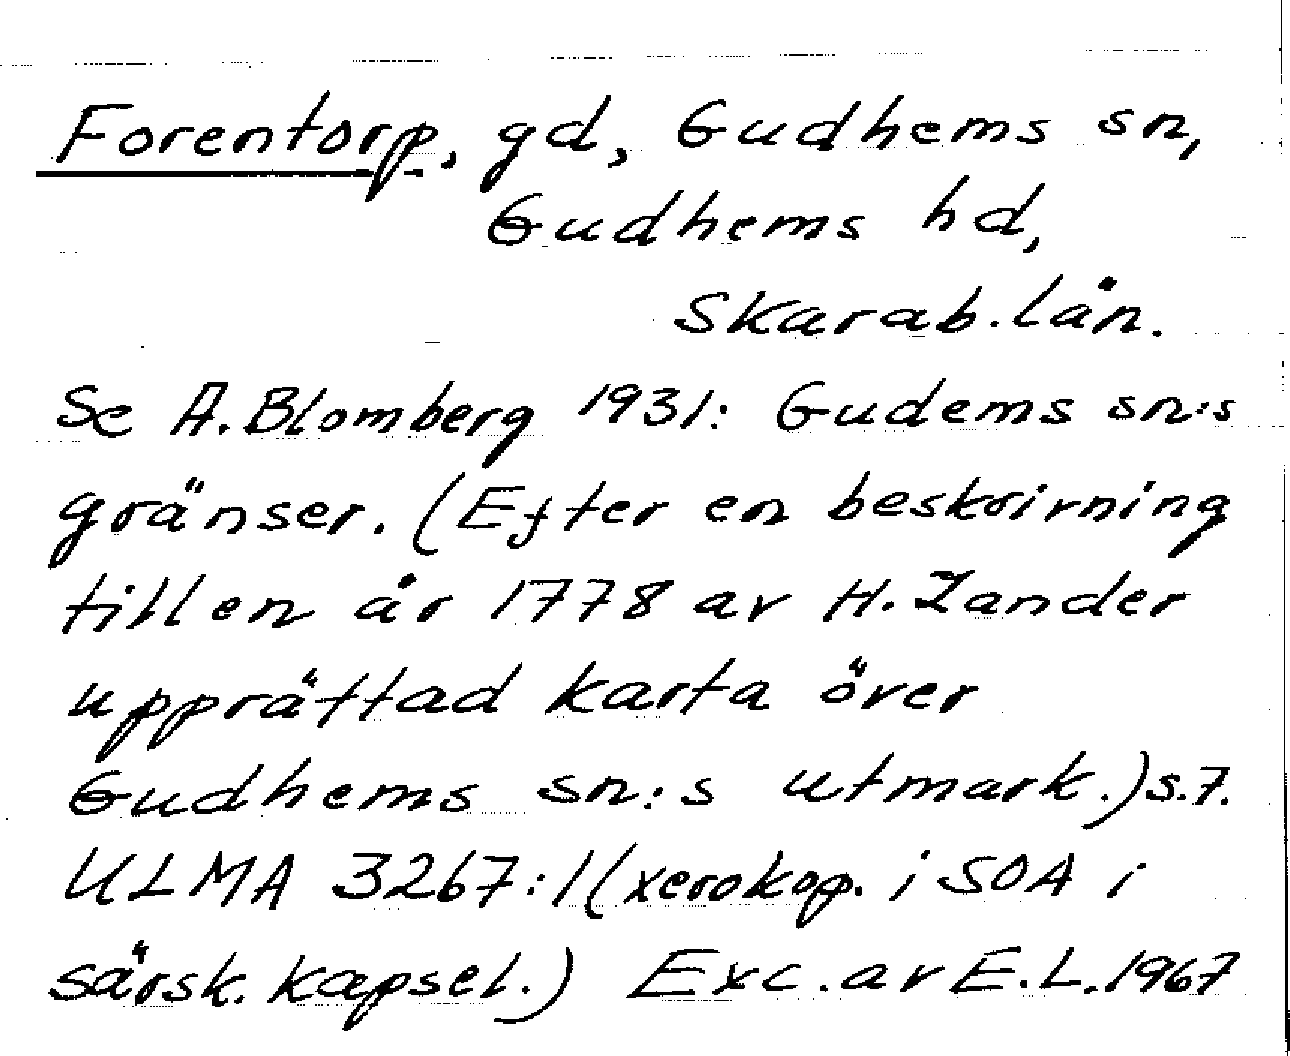 Forentorp, gd, Gudhems sn,
Gudhems hd,
Skarab. län.
Se A. Blomberg 1931: Gudems sn:s
gränser. (Efter en beskrivning
till en år 1778 av H. Zander
upprättad karta över
Gudhems sn:s utmark.) s. 7.
ULMA 3267:1 (xerokop. i SOA i
särsk. kapsel.) Exc. av E.L. 1967